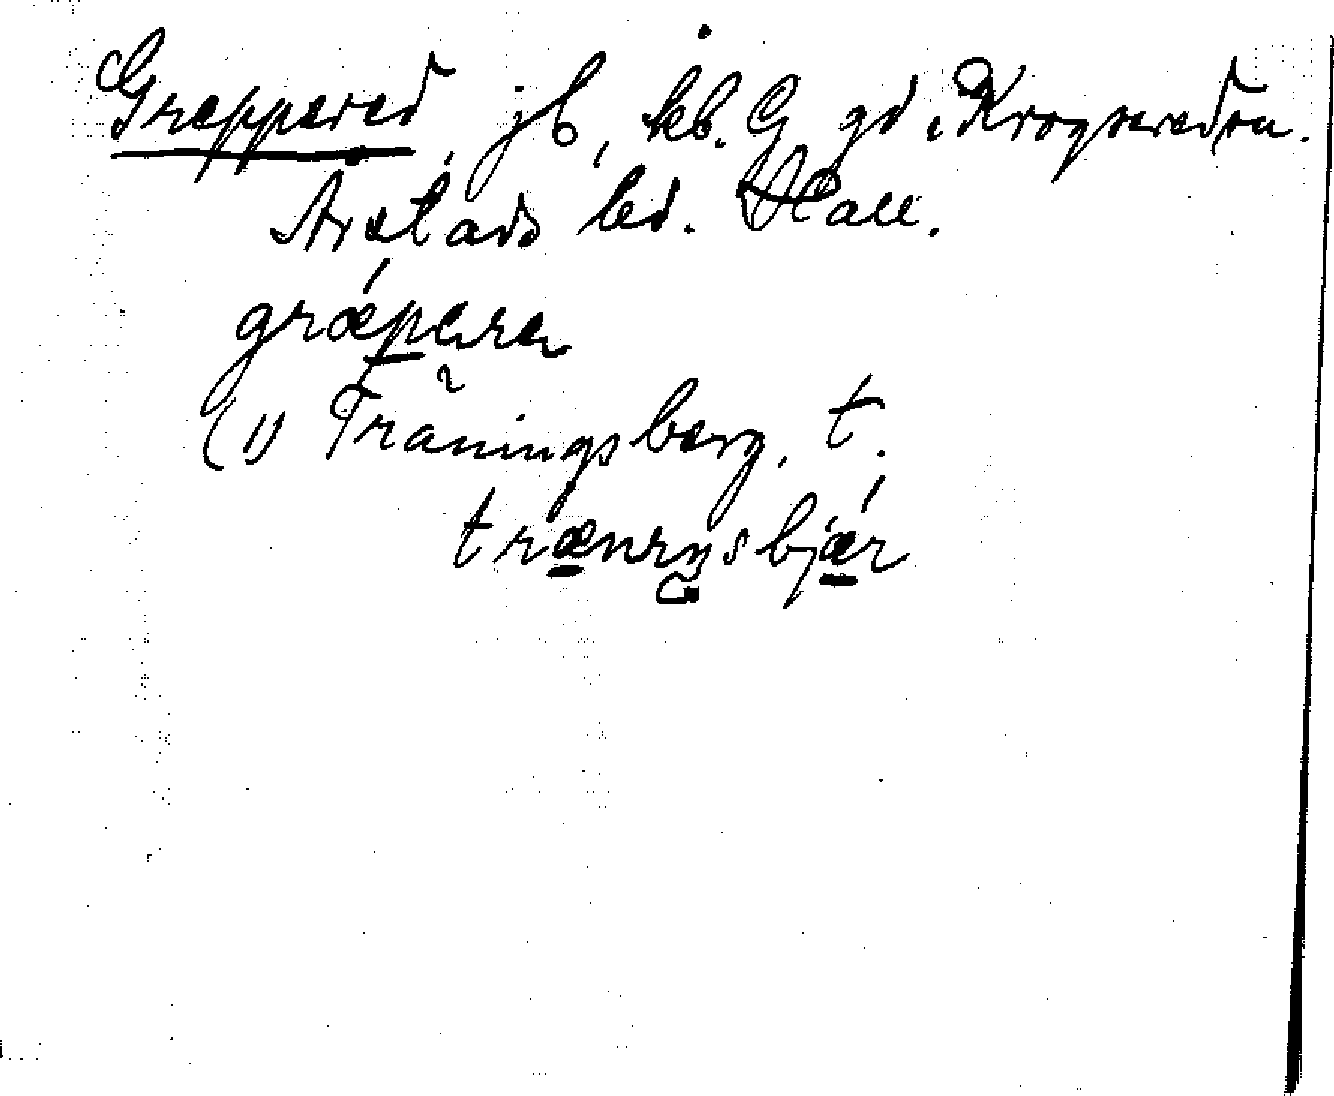 Greppered, jb, kb. G gd i Krogsered sn.
Årstads hd. Hall.
græpere
(1) Träningsberg, t.
trænıŋsbjær